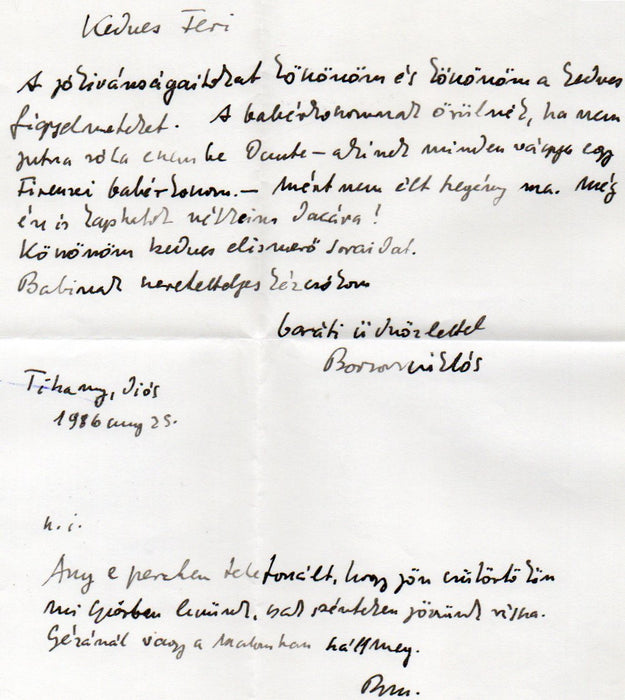 Kedves Feri
A jókivánságaitokat köszönöm és köszönöm a kedves
figyelmeteket. A babérkoszorunak örülnék, ha nem
jutna róla eszembe Dante – akinek minden vágya egy
Firenzei babérkoszoru. – Miért nem élt szegény ma. Még
én is kaphatok nélkeim dacára!
Köszönöm kedves elismerő soraidat.
Babinak szeretetteljes kézcsókom
baráti üdvözlettel
Borsos Miklós
Tihany, Diós
1986 aug 25.
u.i.
Any e percben telefonált, hogy jön csütörtökön
mi Győrben leszünk, csak pénteken jövünk vissza.
Gézánál vagy a malomban hálj meg.
BM.